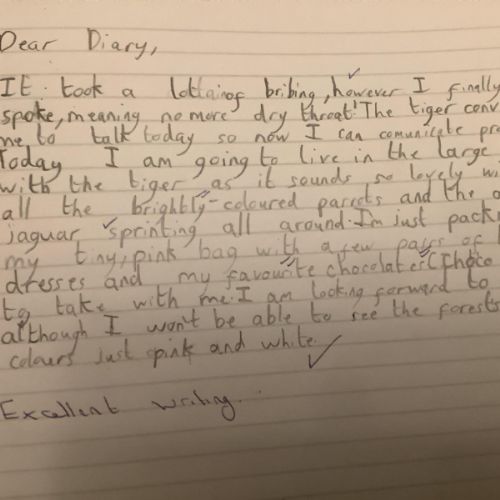 Dear Diary,
It took a lotta of bribing, however I finally
spoke, meaning no more dry throat! The tiger conv
me to talk today so now I can comunicate pro
Today I am going to live in the large
with the tiger as it sounds so lovely wi
all the brightly-coloured parrots and the o
jaguar sprinting all around. I'm just packi
my tiny, pink bag with a few pairs of
dresses and my favourite chocolates (Choco
to take with me. I am looking forward to
although I won't be able to see the forests
colours just pink and white.
Excellent writing.